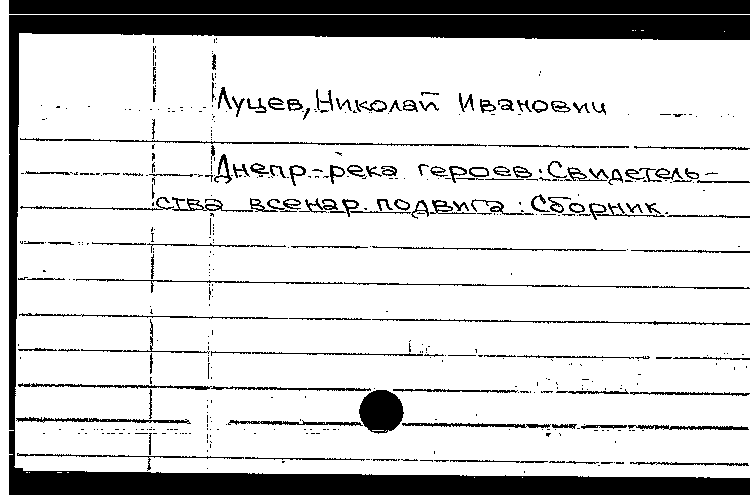 Луцев, Николай Иванович
Днепр-река героев: Свидетель-
ства всенар. подвига: Сборник.